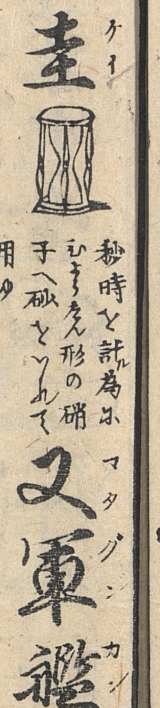 ケイ
圭
秒時を計ル為に
ひようたん形の硝
子へ砂をいれて
用ゆ
マタグンカン
又軍艦